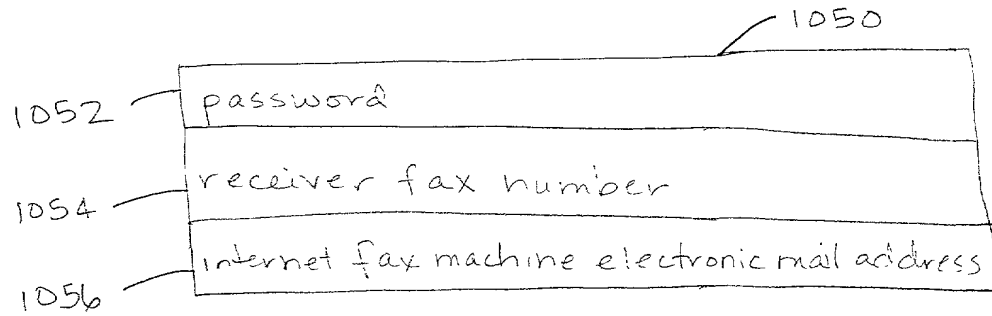 1050
1052 password
1054 receiver fax number
1056 internet fax machine electronic mail address